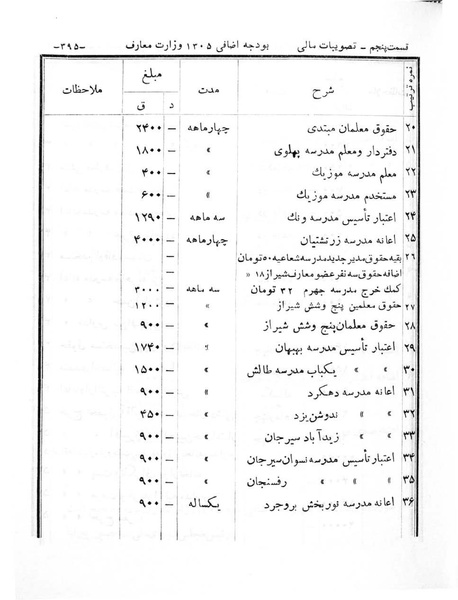 قسمت پنجم – تصویبات مالی بودجه اضافی ۱۳۰۵ وزارت معارف –۳۹۵–
نمره ترتیب شرح مدت مبلغ ملاحظات
د ق
۲۰ حقوق معلمان مبتدی چهارماهه – ۲۴۰۰
۲۱ دفتردار و معلم مدرسه پهلوی » – ۱۸۰۰
۲۲ معلم مدرسه موزیك » – ۴۰۰
۲۳ مستخدم مدرسه موزیك » – ۶۰۰
۲۴ اعتبار تأسیس مدرسه ونك سه ماهه – ۱۲۹۰
۲۵ اعانه مدرسه زرتشتیان چهارماهه – ۴۰۰۰
۲۶ بقیه حقوق مدیر جدید مدرسه شعاعیه ۵۰ تومان –
اضافه حقوق سه نفر عضو معارف شیراز ۱۸ » –
كمك خرج مدرسه جهرم ۳۲ تومان سه ماهه – ۳۰۰۰
۲۷ حقوق معلمین پنج وشش شیراز » – ۱۲۰۰
۲۸ حقوق معلمان پنج وشش شیراز » – ۹۰۰
۲۹ اعتبار تأسیس مدرسه بهبهان » – ۱۷۴۰
۳۰ » » یکباب مدرسه طالش » – ۱۵۰۰
۳۱ اعانه مدرسه دهکرد » – ۹۰۰
۳۲ » » ندوشن یزد » – ۴۵۰
۳۳ » » زیدآباد سیرجان » – ۹۰۰
۳۴ اعتبار تأسیس مدرسه نسوان سیرجان » – ۹۰۰
۳۵ » » » رفسنجان » – ۹۰۰
۳۶ اعانه مدرسه نوربخش بروجرد یکساله – ۹۰۰